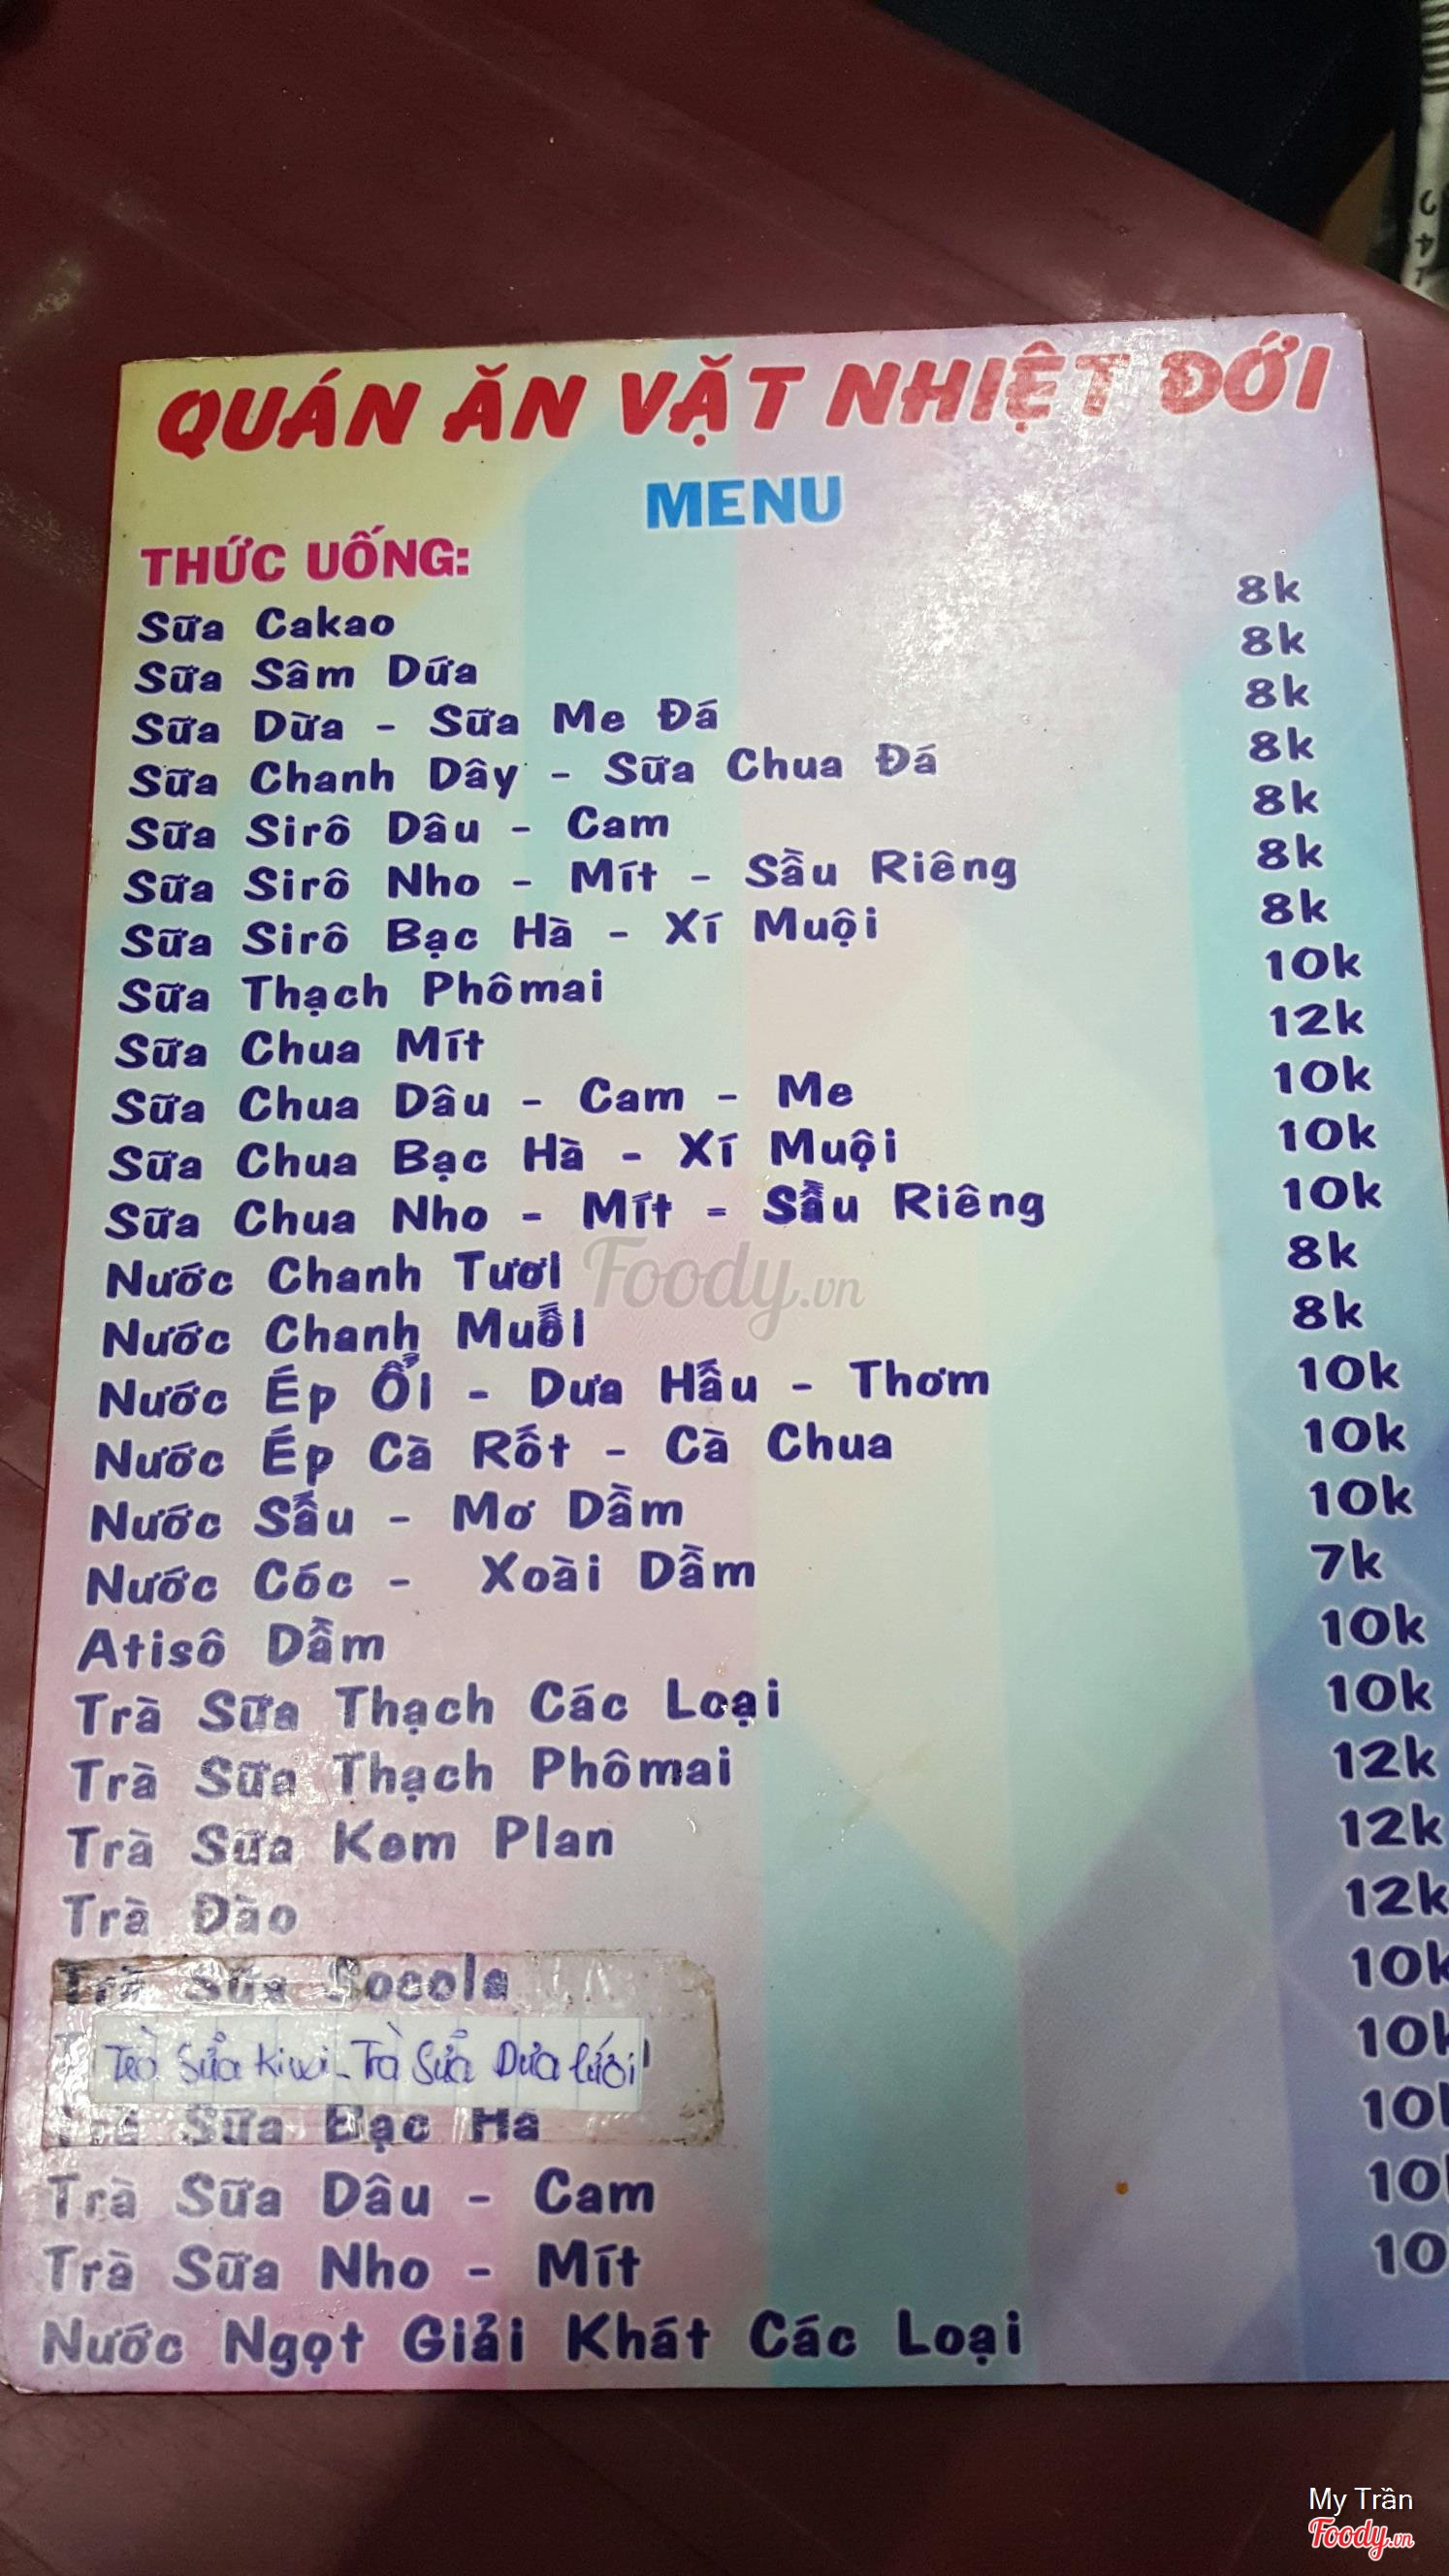 QUÁN ĂN VẶT NHIỆT ĐỚI
MENU
THỨC UỐNG:
Sữa Cakao 8k
Sữa Sâm Dứa 8k
Sữa Dừa - Sữa Me Đá 8k
Sữa Chanh Dây - Sữa Chua Đá 8k
Sữa Sirô Dâu - Cam 8k
Sữa Sirô Nho - Mít - Sầu Riêng 8k
Sữa Sirô Bạc Hà - Xí Muội 8k
Sữa Thạch Phômai 10k
Sữa Chua Mít 12k
Sữa Chua Dâu - Cam - Me 10k
Sữa Chua Bạc Hà - Xí Muội 10k
Sữa Chua Nho - Mít - Sầu Riêng 10k
Nước Chanh Tươi 8k
Nước Chanh Muối 8k
Nước Ép Ổi - Dưa Hấu - Thơm 10k
Nước Ép Cà Rốt - Cà Chua 10k
Nước Sấu - Mơ Dầm 10k
Nước Cóc - Xoài Dầm 7k
Atisô Dầm 10k
Trà Sữa Thạch Các Loại 10k
Trà Sữa Thạch Phômai 12k
Trà Sữa Kem Plan 12k
Trà Đào 12k
Trà Sữa Socola 10k
Trà Sữa Kiwi - Trà Sữa Dưa lưới 10k
Trà Sữa Bạc Hà 10k
Trà Sữa Dâu - Cam 10k
Trà Sữa Nho - Mít 10
Nước Ngọt Giải Khát Các Loại
Foody.vn
My Trần
Foody.vn